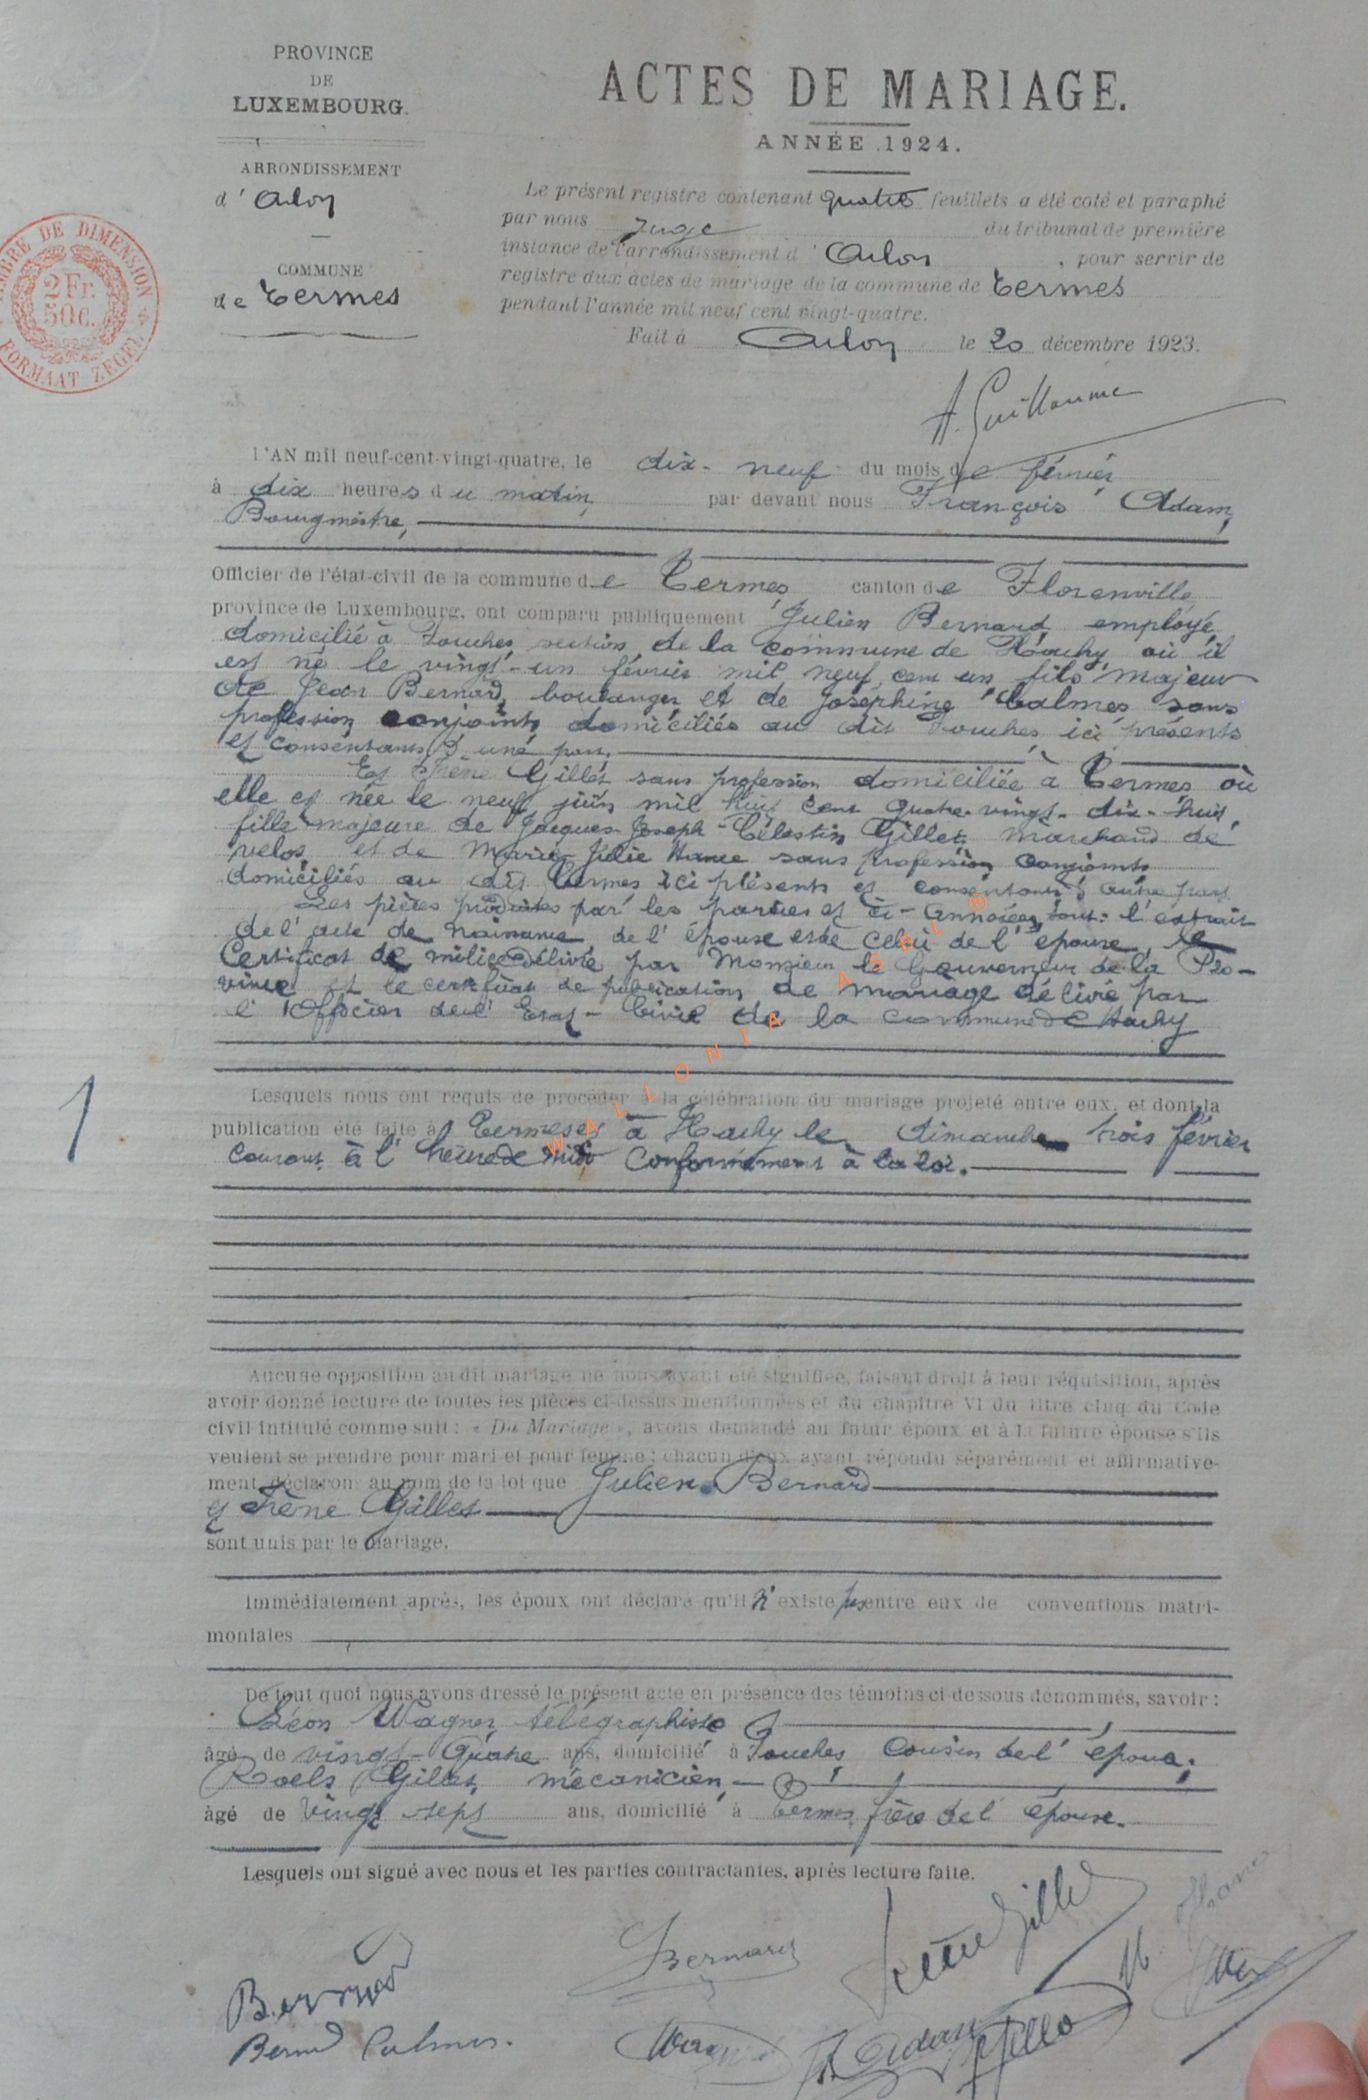 PROVINCE
DE
LUXEMBOURG.
ARRONDISSEMENT
d'Arlon
COMMUNE
de Termes
TIMBRE DE DIMENSION
2 Fr.
50 c.
FORMAAT ZEGEL
ACTES DE MARIAGE.
ANNÉE 1924.
Le présent registre contenant quatre feuillets a été coté et paraphé
par nous Juge du tribunal de première
instance de l'arrondissement d'Arlon, pour servir de
registre aux actes de mariage de la commune de Termes
pendant l'année mil neuf cent vingt-quatre.
Fait à Arlon le 20 décembre 1923.
A. Guillaume
L'AN mil neuf-cent-vingt-quatre, le dix-neuf du mois de février
à dix heures du matin, par devant nous François Adam,
Bourgmestre,
Officier de l'état-civil de la commune de Termes, canton de Florenville,
province de Luxembourg, ont comparu publiquement Julien Bernard employé
domicilié à Fouches section de la commune de Hachy où il
est né le vingt-un février mil neuf cent un fils majeur
de Jean Bernard, boulanger et de Joséphine Calmes sans
profession conjoints domiciliés au dit Fouches, ici présents
et consentants d'une part,
Et Irène Gillet sans profession domiciliée à Termes où
elle est née le neuf juin mil huit cent quatre-vingt-dix-huit,
fille majeure de Jacques-Joseph-Célestin Gillet marchand de
vélos, et de Marie-Julie Hance sans profession conjoints
domiciliés au dit Termes ici présents et consentants d'autre part
Les pièces produites par les parties et ci-annexées, sont: l'extrait
de l'acte de naissance de l'époux celui de l'épouse, le
Certificat de milice délivré par Monsieur le Gouverneur de la Pro-
vince et le certificat de publication de mariage délivré par
l'Officier de l'Etat-Civil de la commune de Hachy
Lesquels nous ont requis de procéder à la célébration du mariage projeté entre eux, et dont la
publication été faite à Termes et à Hachy le dimanche trois février
courant à l'heure de midi conformément à la loi.
1
Aucune opposition au dit mariage ne nous ayant été signifiée, faisant droit à leur réquisition, après
avoir donné lecture de toutes les pièces ci-dessus mentionnées et du chapitre VI du titre cinq du Code
civil intitulé comme suit: « Du Mariage », avons demandé au futur époux et à la future épouse s'ils
veulent se prendre pour mari et pour femme; chacun d'eux ayant répondu séparément et affirmative-
ment, déclarons au nom de la loi que Julien Bernard
et Irène Gillet
sont unis par le mariage.
Immédiatement après, les époux ont déclaré qu'il n'existe pas entre eux de conventions matri-
moniales
De tout quoi nous avons dressé le présent acte en présence des témoins ci-dessous dénommés, savoir:
Léon Wagner télégraphiste
âgé de vingt-quatre ans, domicilié à Fouches, cousin de l'époux;
Gillet, mécanicien,
âgé de vingt-sept ans, domicilié à Termes, frère de l'épouse.
Lesquels ont signé avec nous et les parties contractantes, après lecture faite.
Irène Gillet
Bernard
Bernard
Calmes.
Adam
WALLONIA ASBL ®